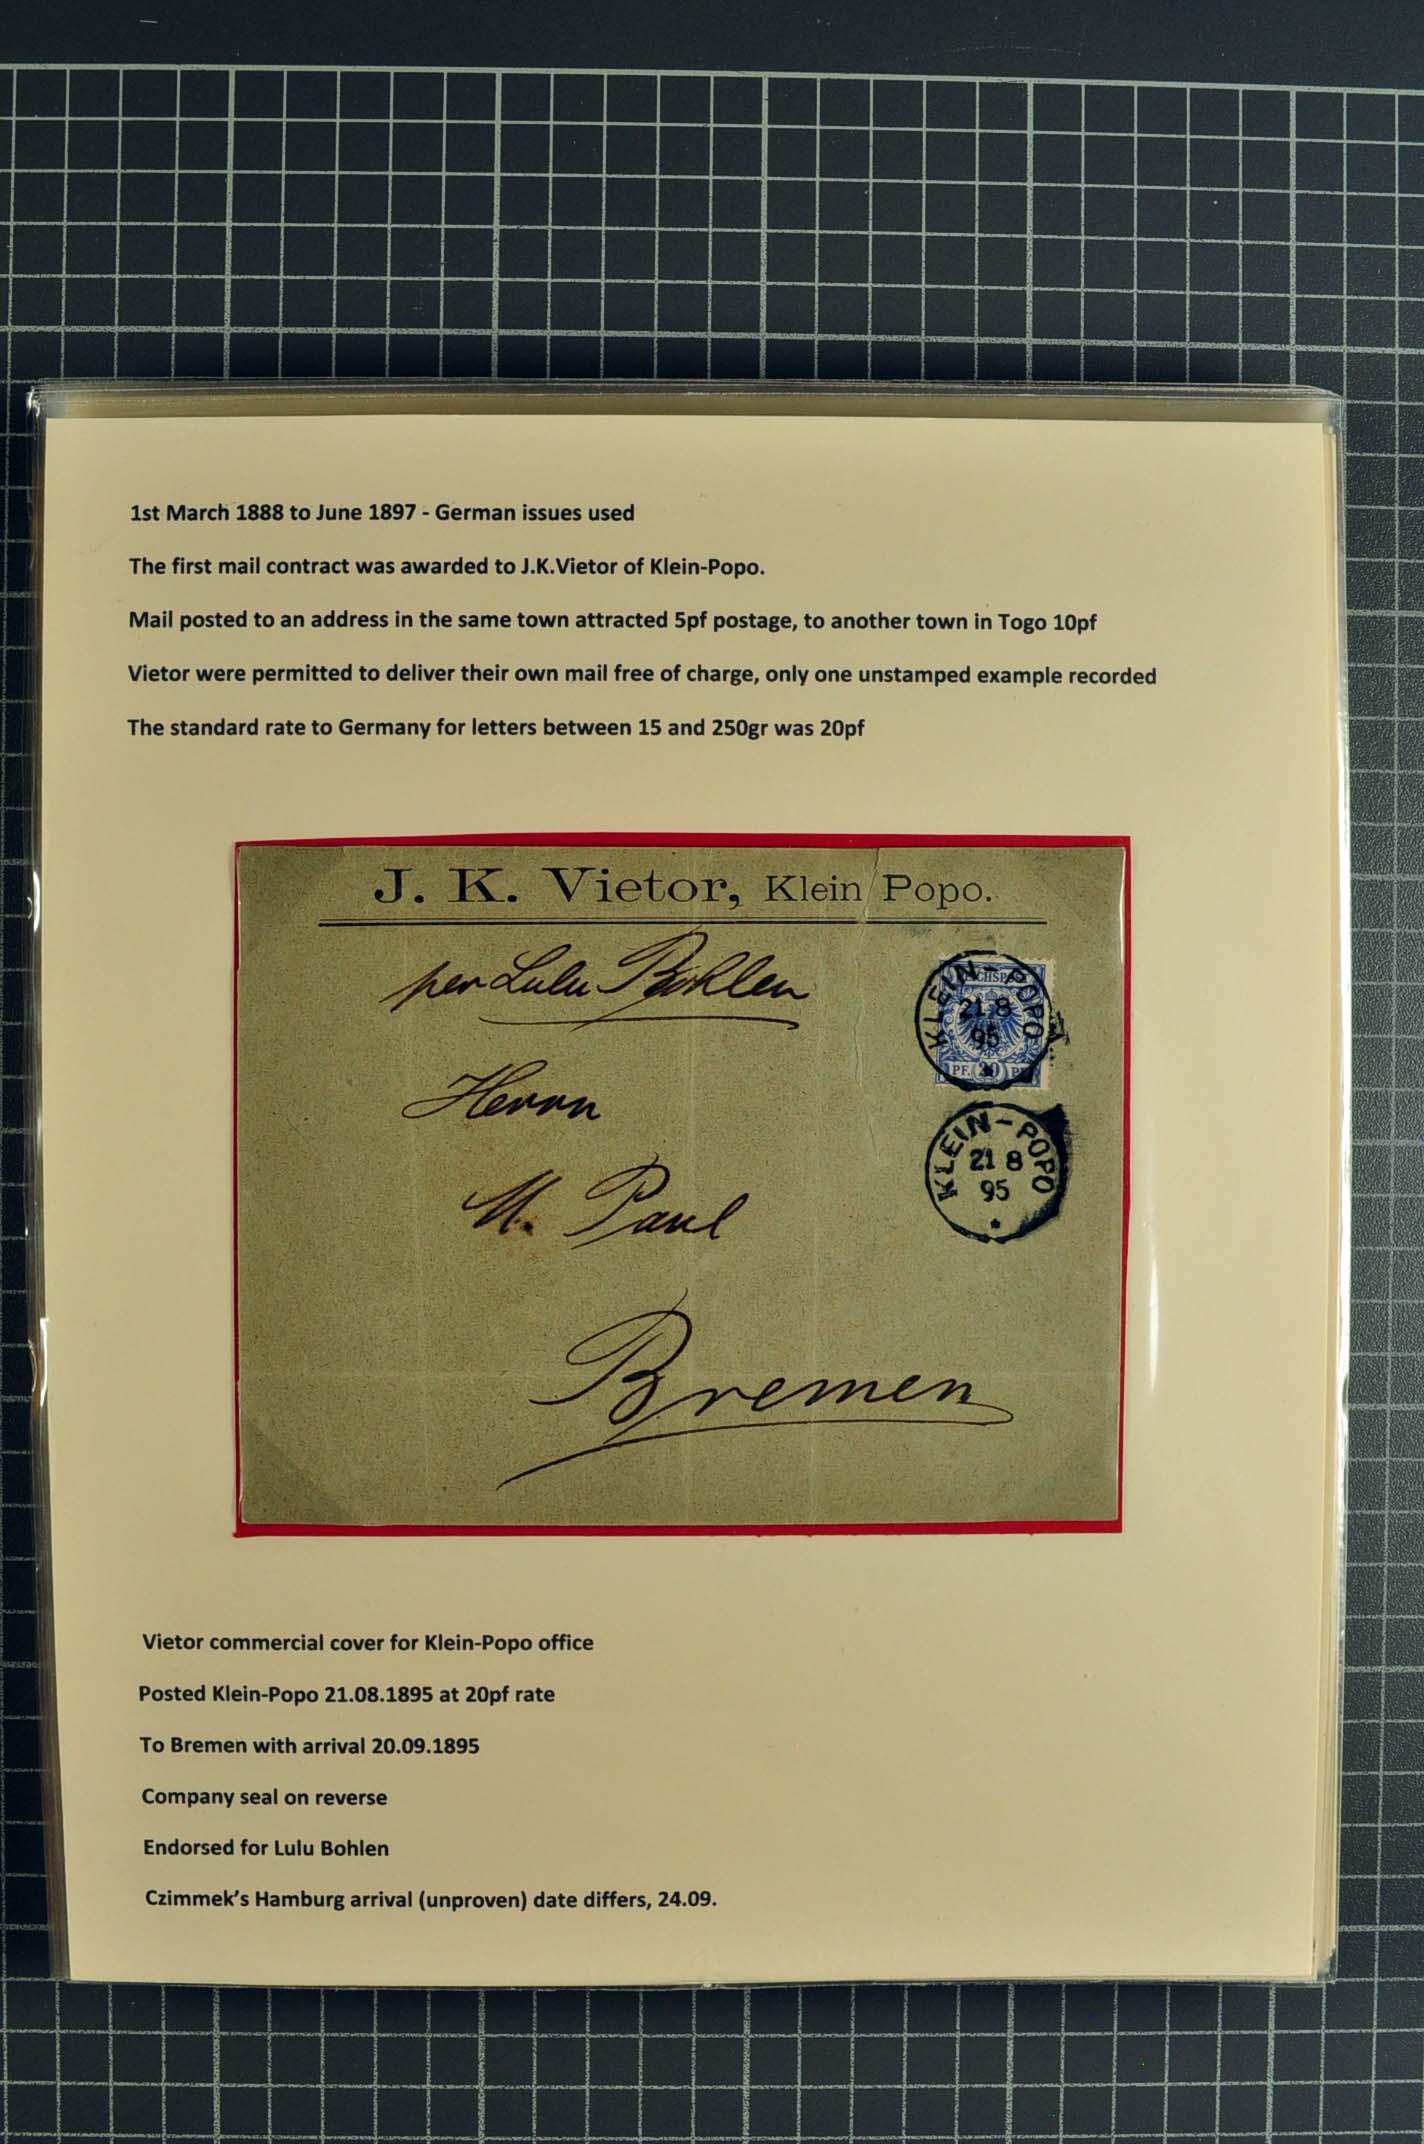 1st March 1888 to June 1897 - German issues used
The first mail contract was awarded to J.K.Vietor of Klein-Popo.
Mail posted to an address in the same town attracted 5pf postage, to another town in Togo 10pf
Vietor were permitted to deliver their own mail free of charge, only one unstamped example recorded
The standard rate to Germany for letters between 15 and 250gr was 20pf
J. K. Vietor, Klein Popo.
per Lulu Bohlen
REICHSPOST
KLEIN-POPO
21 8
95
PF. 20 PF.
Herrn
KLEIN-POPO
21 8
95
M. Paul
Bremen
Vietor commercial cover for Klein-Popo office
Posted Klein-Popo 21.08.1895 at 20pf rate
To Bremen with arrival 20.09.1895
Company seal on reverse
Endorsed for Lulu Bohlen
Czimmek’s Hamburg arrival (unproven) date differs, 24.09.